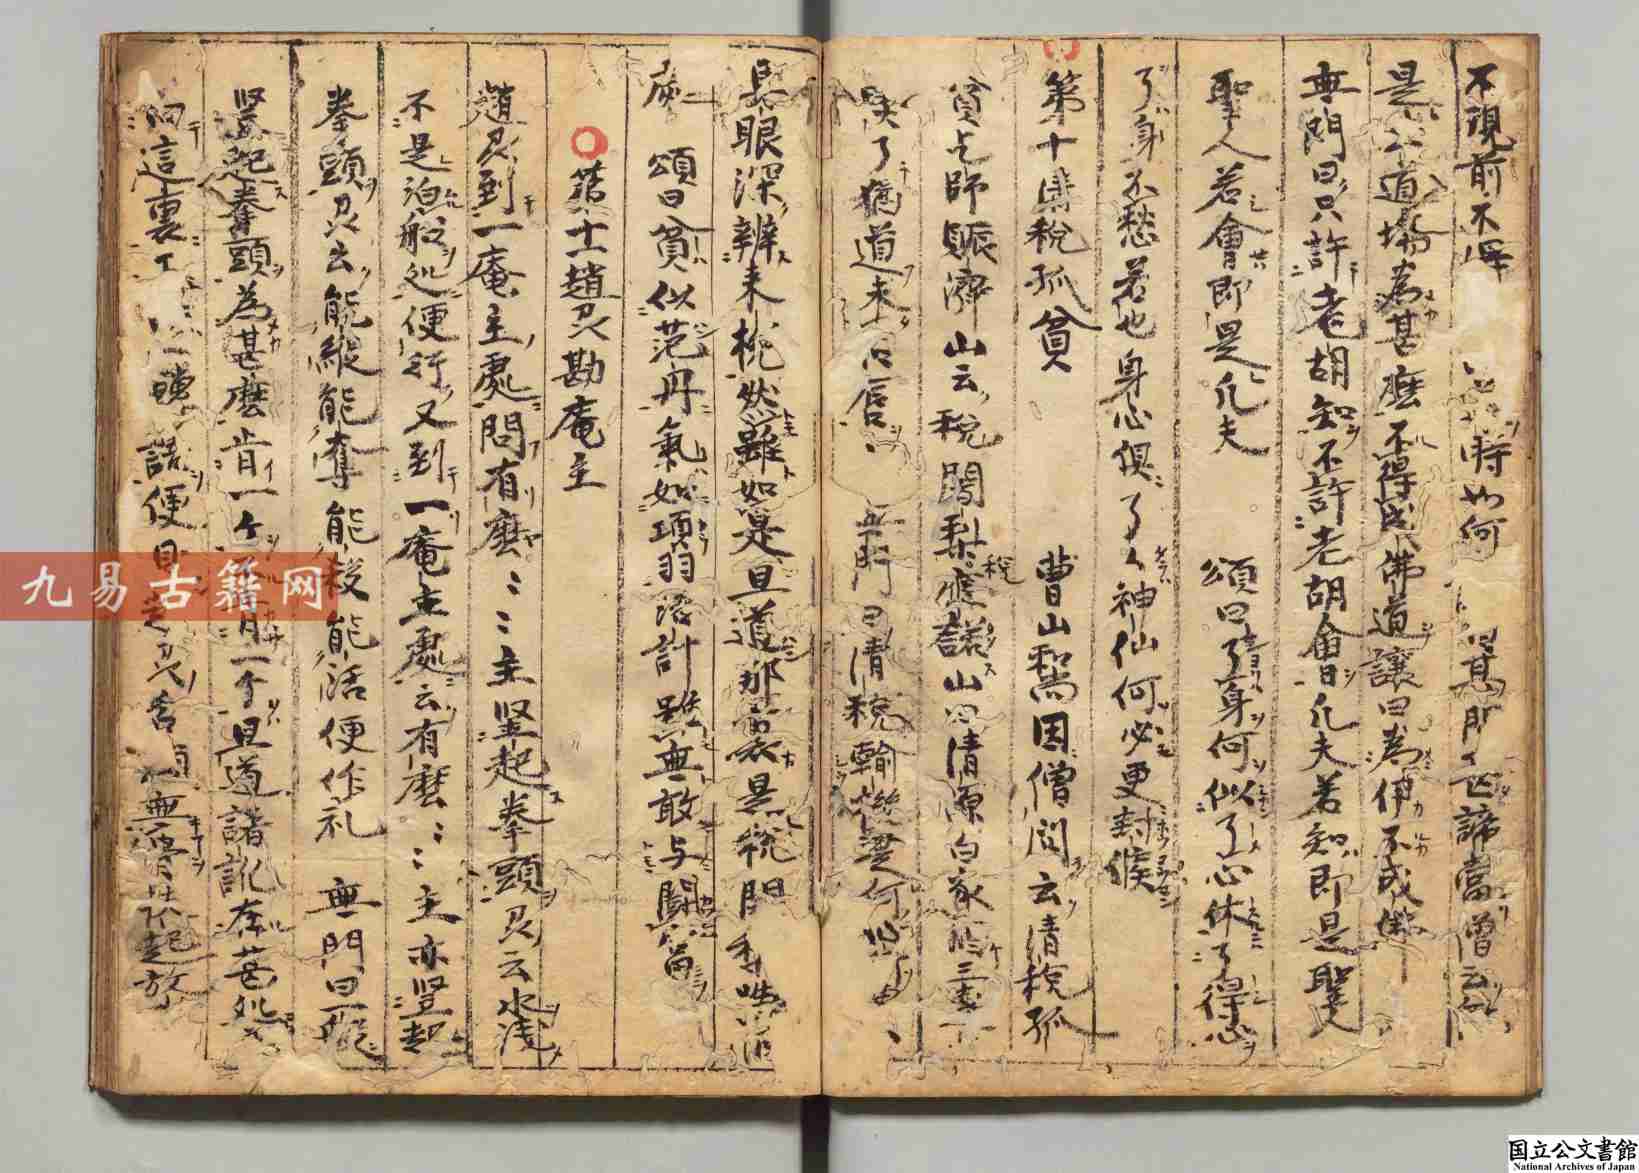 不現前不得
時如何 其問 諦當僧云
是 道場為甚麼不得成佛道讓曰為伊不成佛
無門曰只許老胡知不許老胡會凡夫若知即是聖人
聖人若會即是凡夫 頌曰了身何似了心休了得心
了身不愁若也身心俱了々神仙何必更封候
第十 清税孤貧
曹山和尚因僧問云清税孤
貧乞師賑濟山云税闍梨税應諾山曰清源白家 三
喫了猶道未 唇 無門曰清税輸機是何心
具眼深辨来機然雖如是且道那裏是税闍 喫
處 頌曰貧似范丹氣如項羽活計雖無敢与闘冨
第十一趙州勘庵主
趙州到一庵主處問有麼〻〻主竪起拳頭州云水浅
不是泊舡処便行又到一庵主處云有麼〻〻主亦竪起
拳頭州云能縦能奪能殺能活便作礼 無門曰一般
竪起拳頭為甚麼肯一ケ不肯一ケ且道誵訛在甚処
向這裏 轉語便見趙州舌頭無骨 起放
九易古籍网
国立公文書館
National Archives of Japan